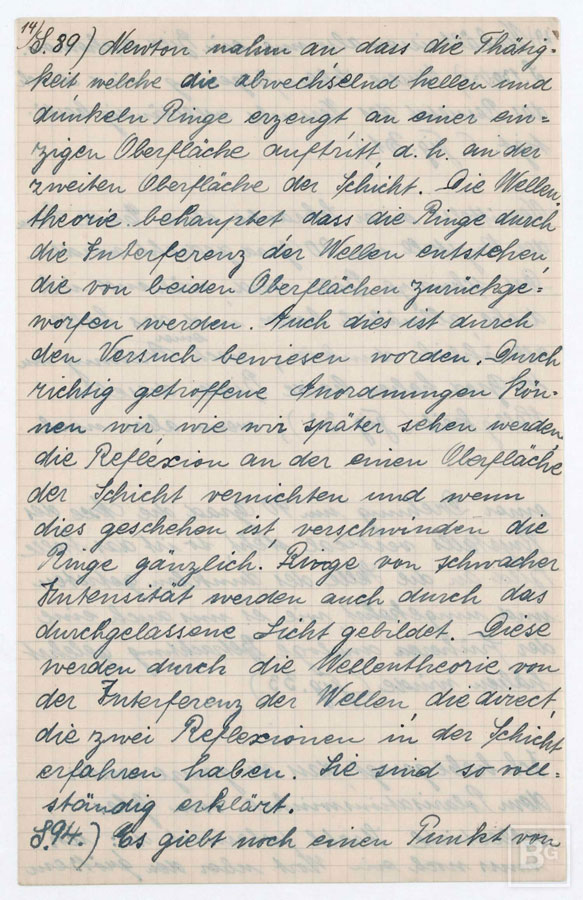 14/
S. 89) Newton nahm an dass die Thätig-
keit welche die abwechselnd hellen und
dunkeln Ringe erzeugt an einer ein=
zigen Oberfläche auftritt d. h. an der
zweiten Oberfläche der Schicht. Die Wellen-
theorie behauptet dass die Ringe durch
die Interferenz der Wellen entstehen,
die von beiden Oberflächen zurückge=
worfen werden. Auch dies ist durch
den Versuch bewiesen worden. Durch
richtig getroffene Anordnungen kön-
nen wir wie wir später sehen werden
die Reflexion an der einen Oberfläche
der Schicht vernichten und wenn
dies geschehen ist, verschwinden die
Ringe gänzlich. Ringe von schwacher
Intensität werden auch durch das
durchgelassene Licht gebildet. Diese
werden durch die Wellentheorie von
der Interferenz der Wellen die direct
die zwei Reflexionen in der Schicht
erfahren haben. Sie sind so voll=
ständig erklärt.
S. 94.) Es giebt noch einen Punkt von
BG